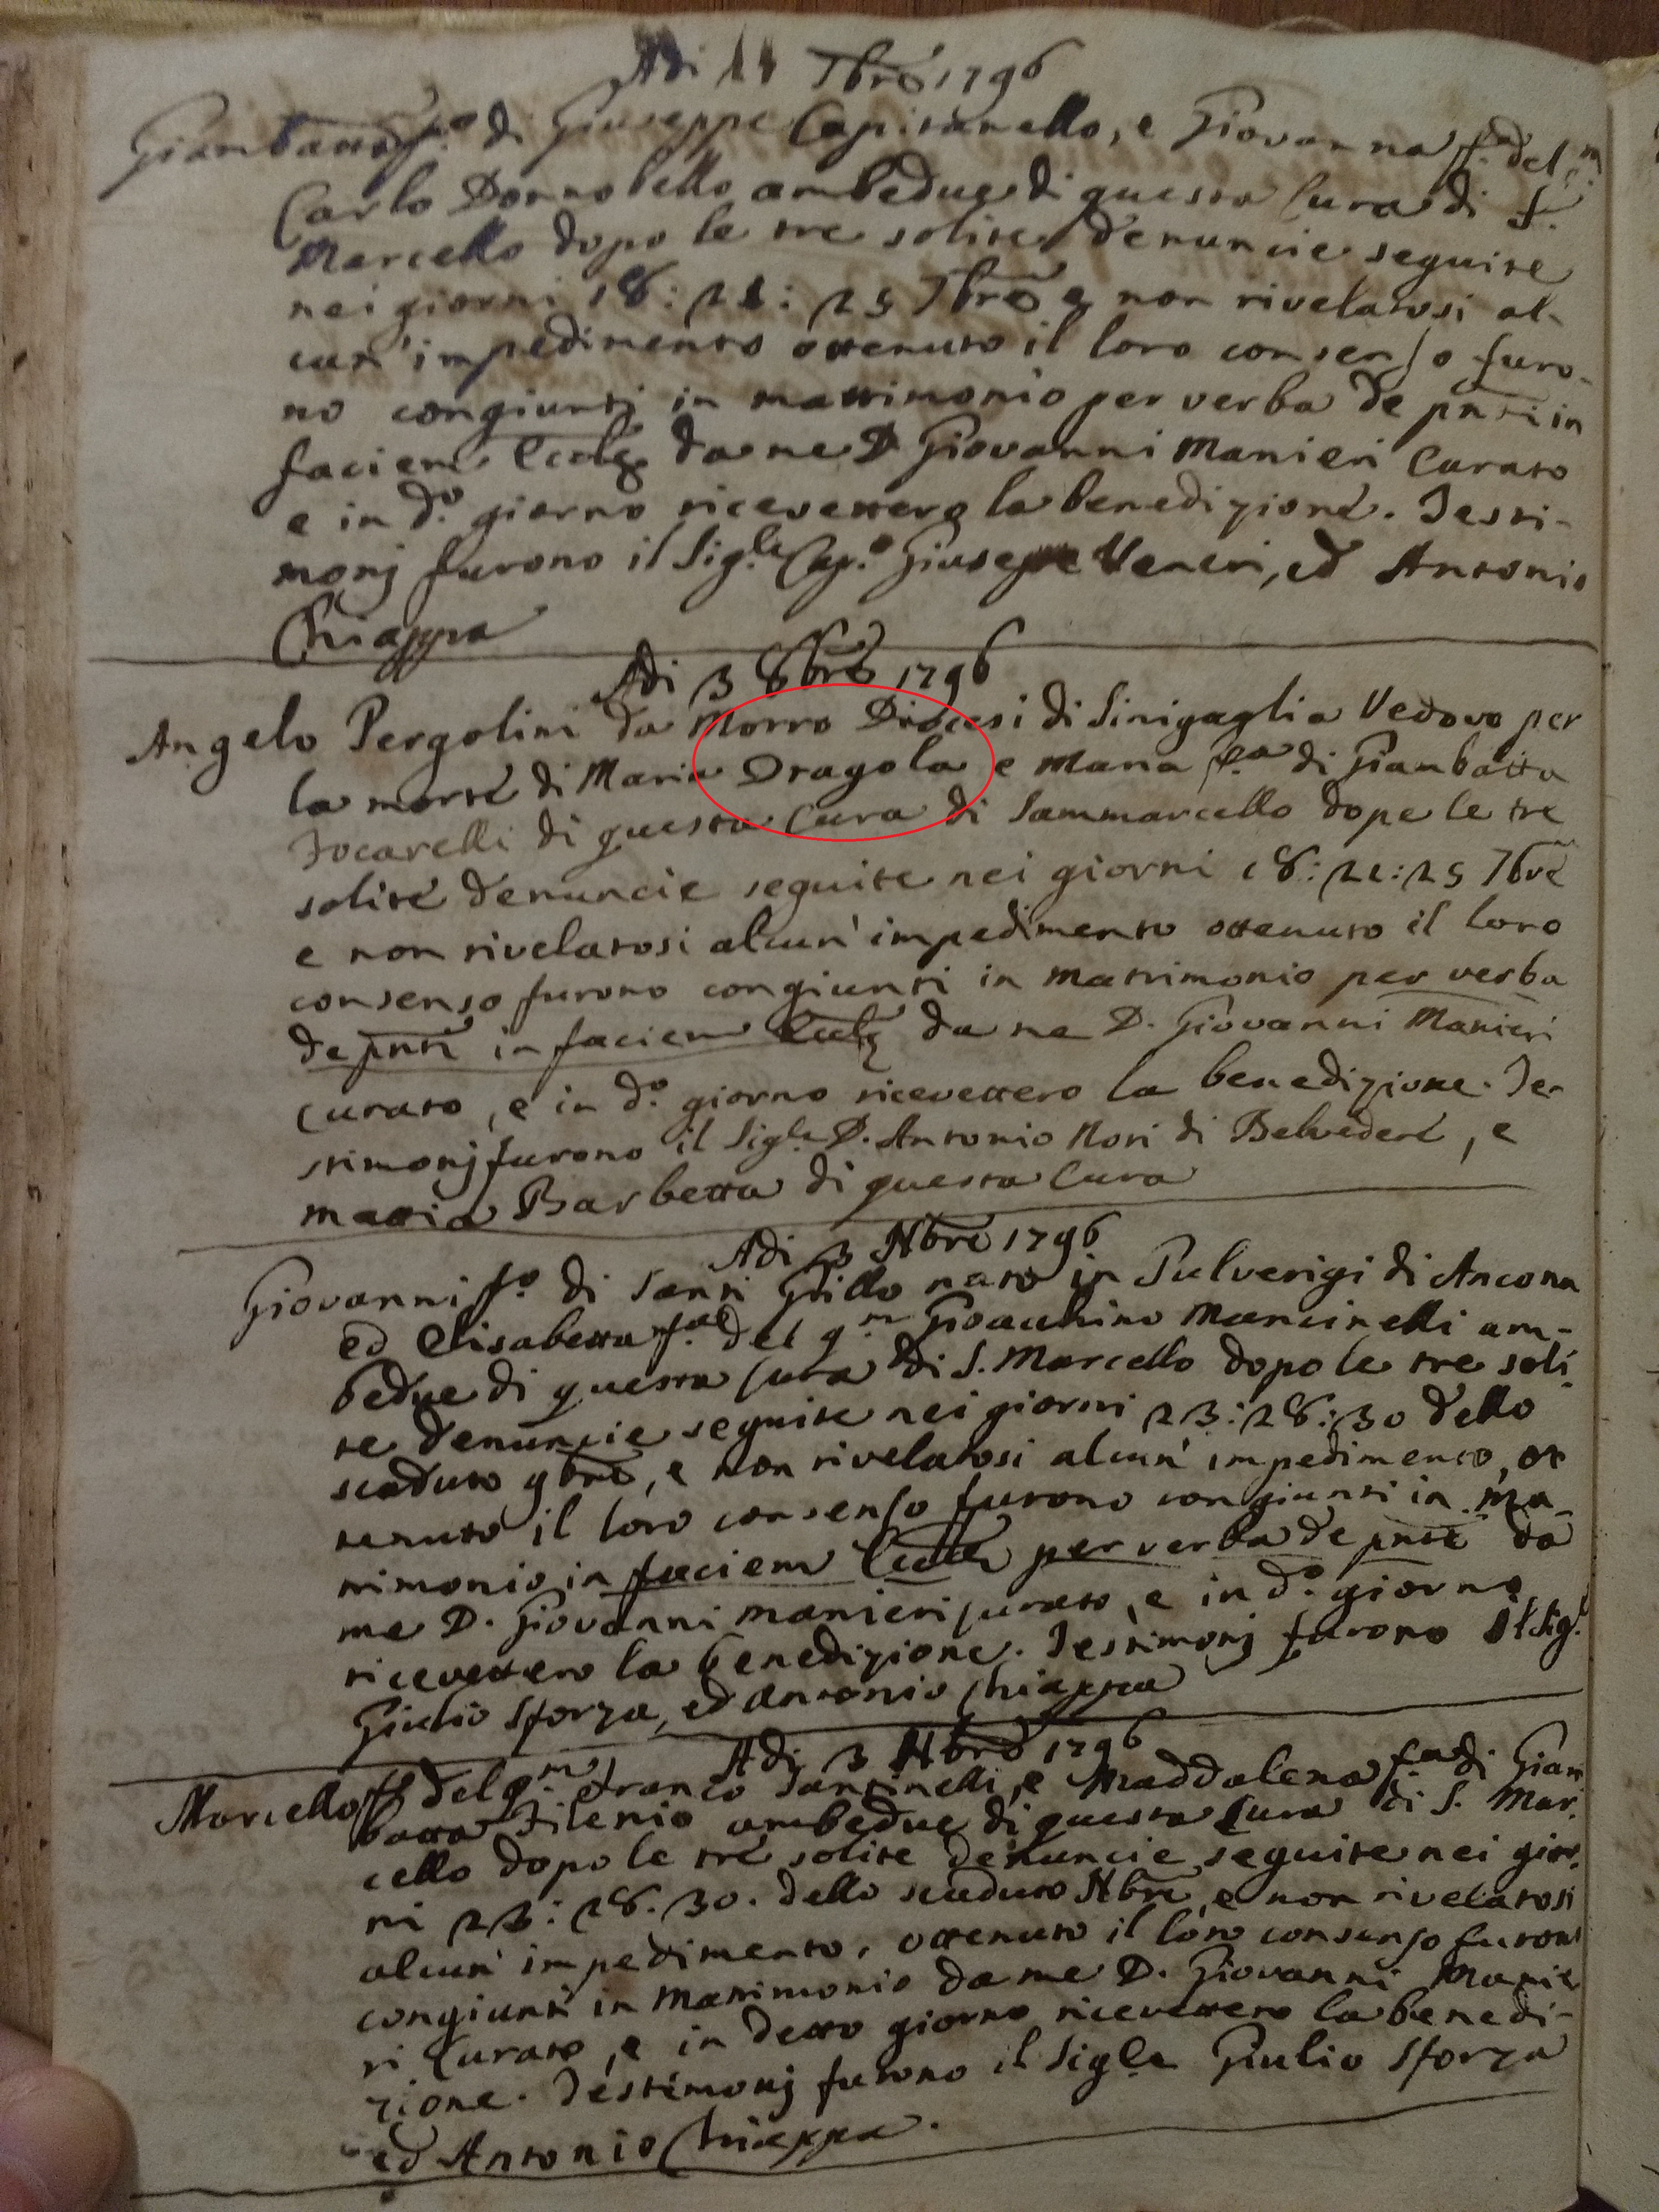 Adi 14 7bre 1796
Giambatta f.o di Giuseppe Capitanello, e Giovanna f.a del m
Carlo Donnobello ambedue di questa Cura di S.
Marcello dopo le tre solite denuncie seguite
nei giorni 18: 21: 25 7bre e non rivelatosi al-
cun' impedimento ottenuto il loro consenso furo-
no congiunti in matrimonio per verba de pnti in
faciem Eccle da me D Giovanni Manieri Curato
e in d.o giorno ricevettero la benedizione. Testi-
monj furono il Sig.le Cap.o Giuseppe Veneri, ed Antonio
Chiappa
Adi 3 8bre 1796
Angelo Pergolini da Morro Diocesi di Sinigaglia Vedovo per
la morte di Maria Dragola e Maria f.a di Giambatta
Focarelli di questa Cura di Sammarcello dopo le tre
solite denuncie seguite nei giorni 18: 21: 25 7bre
e non rivelatosi alcun' impedimento ottenuto il loro
consenso furono congiunti in matrimonio per verba
de pnti in faciem Eccle da me D. Giovanni Manieri
curato, e in d.o giorno ricevettero la benedizione. Te-
stimonj furono il Sig.le D. Antonio Nori di Belvedere, e
Mattia Barbetta di questa Cura
Adi 3 Nbre 1796
Giovanni f.o di Santi Grillo nato in Pulverigi di Ancona
ed Elisabetta f.a del q.m Gioacchino Mancinelli am-
bedue di questa Cura di S. Marcello dopo le tre soli
te denuncie seguite nei giorni 23: 28: 30 dello
scaduto 9bre, e non rivelatosi alcun' impedimento, ot
tenuto il loro consenso furono congiunti in ma-
trimonio in faciem Eccle per verba de pnti da
me D. Giovanni Manieri Curato, e in d.o giorno
ricevettero la benedizione. Testimonj furono il Sig.l
Giulio Sforza, ed Antonio Chiappa
Adi 3 Nbre 1796
Marcello f del q.m Franco Santinelli, e Maddalena f.a di Giam
batta Filenio ambedue di questa Cura di S. Mar-
cello dopo le tre solite denuncie seguite nei gior-
ni 23: 28. 30. dello scaduto Nbre, e non rivelatosi
alcun' impedimento, ottenuto il loro consenso furono
congiunti in matrimonio da me D. Giovanni Manie
ri Curato, e in detto giorno ricevettero la benedi-
zione. Testimonj furono il Sig.le Giulio Sforza
ed Antonio Chiappa.